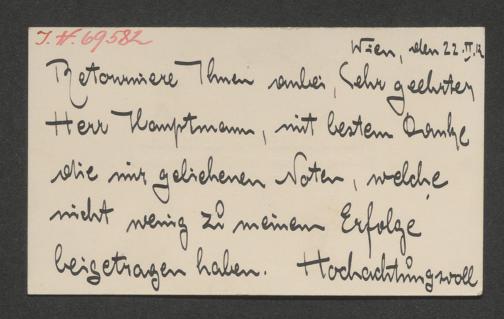 I.N. 69582
Wien, den 22.II.12
Retourniere Ihnen anbei, Sehr geehrter
Herr Hauptmann, mit bestem Danke
die mir geliehenen Noten, welche
nicht wenig zu meinem Erfolge
beigetragen haben. Hochachtungsvoll